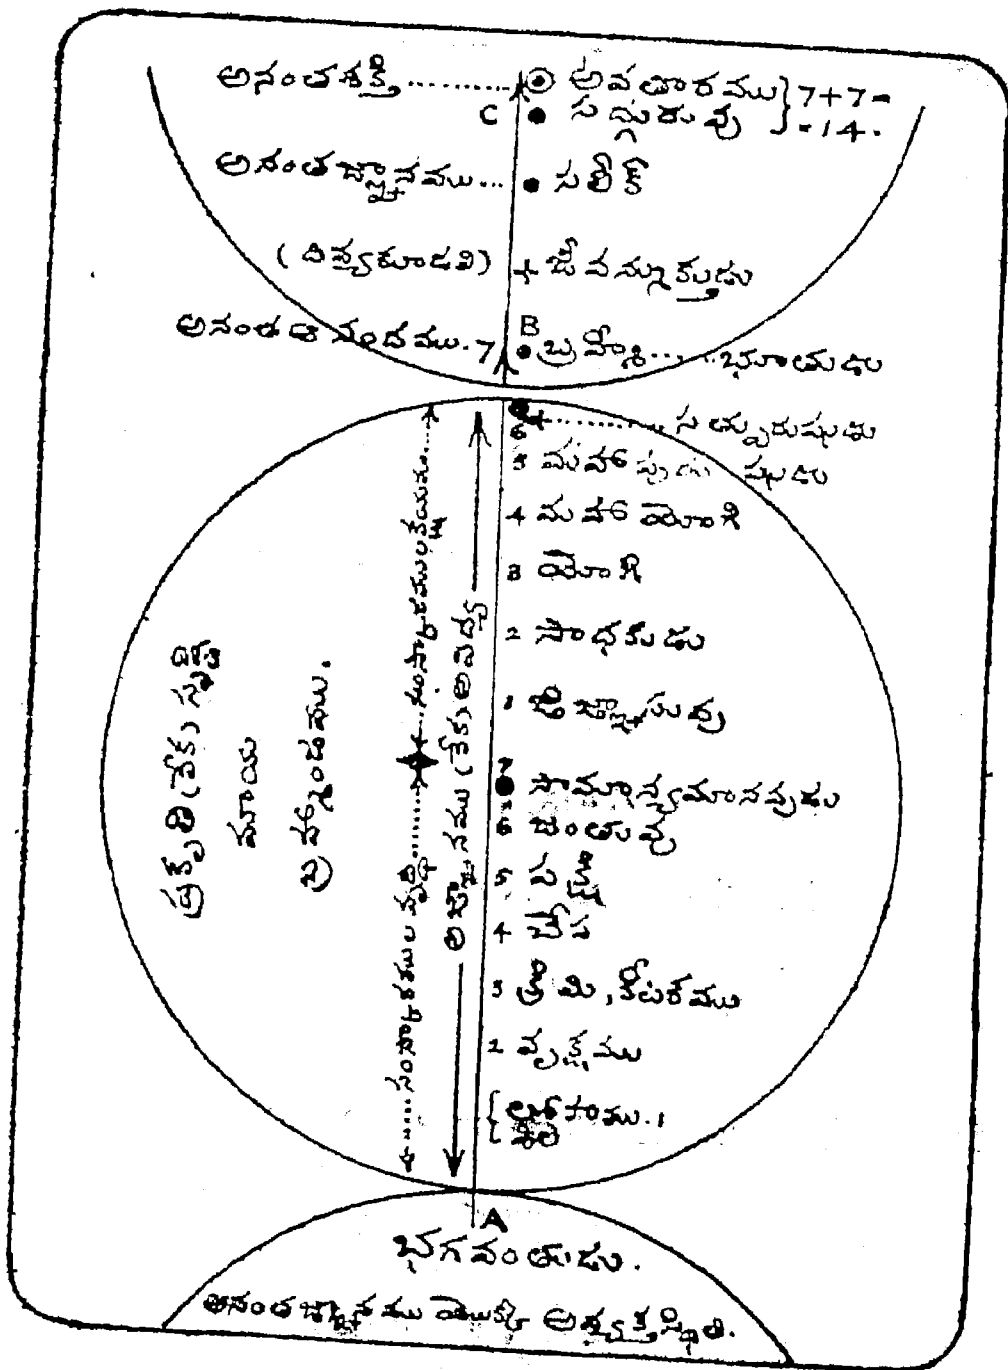 అనంతశక్తి ......... అవతారము } 7+7=
C సద్గురువు } =14.
అనంతజ్ఞానము... సలీక్
(దివ్యకూడలి) + జీవన్ముక్తుడు
B
అనంత ఆనందము. 7 బ్రహ్మీ.......భూతుడు
6 ............ సత్పురుషుడు
5 మహాపురుషుడు
4 మహాయోగి
3 యోగి
2 సాధకుడు
1 జిజ్ఞాసువు
7 సామాన్యమానవుడు
6 జంతువు
5 పక్షి
4 చేప
3 క్రిమి, కీటకము
2 వృక్షము
{ లోహము. 1
శిల
ప్రకృతి (లేక) సృష్టి
మాయ
బ్రహ్మాండము.
సంస్కారముల వృద్ధి
సంస్కారములక్షయము
అజ్ఞానము (లేక) అవిద్య
A
భగవంతుడు.
అనంతజ్ఞానము యొక్క అవ్యక్తస్థితి.